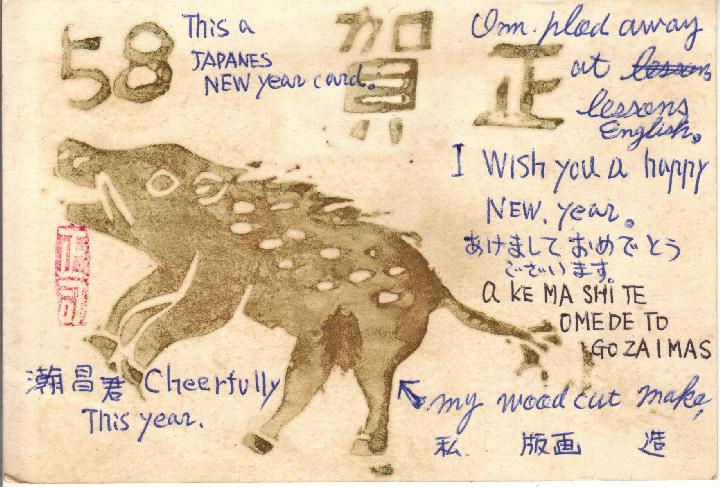 58
賀
正
This a
JAPANES
NEW year card。
plod away
at lessons
lessons
English。
I Wish you a happy
NEW. year。
あけまして おめでとう
ございます。
a KE MA SHI TE
OMEDE TO
GO ZAIMAS
瀚昌君 Cheerfully
This year.
my wood cut make,
私 版画 造